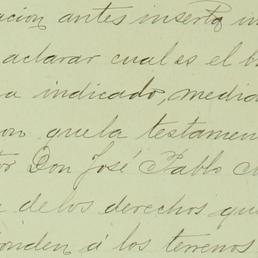 acion antes inserta in
aclarar cual es el b
a indicado, media
on que la testamen
tor Don José Pablo M
de los derechos que
onden á los terrenos